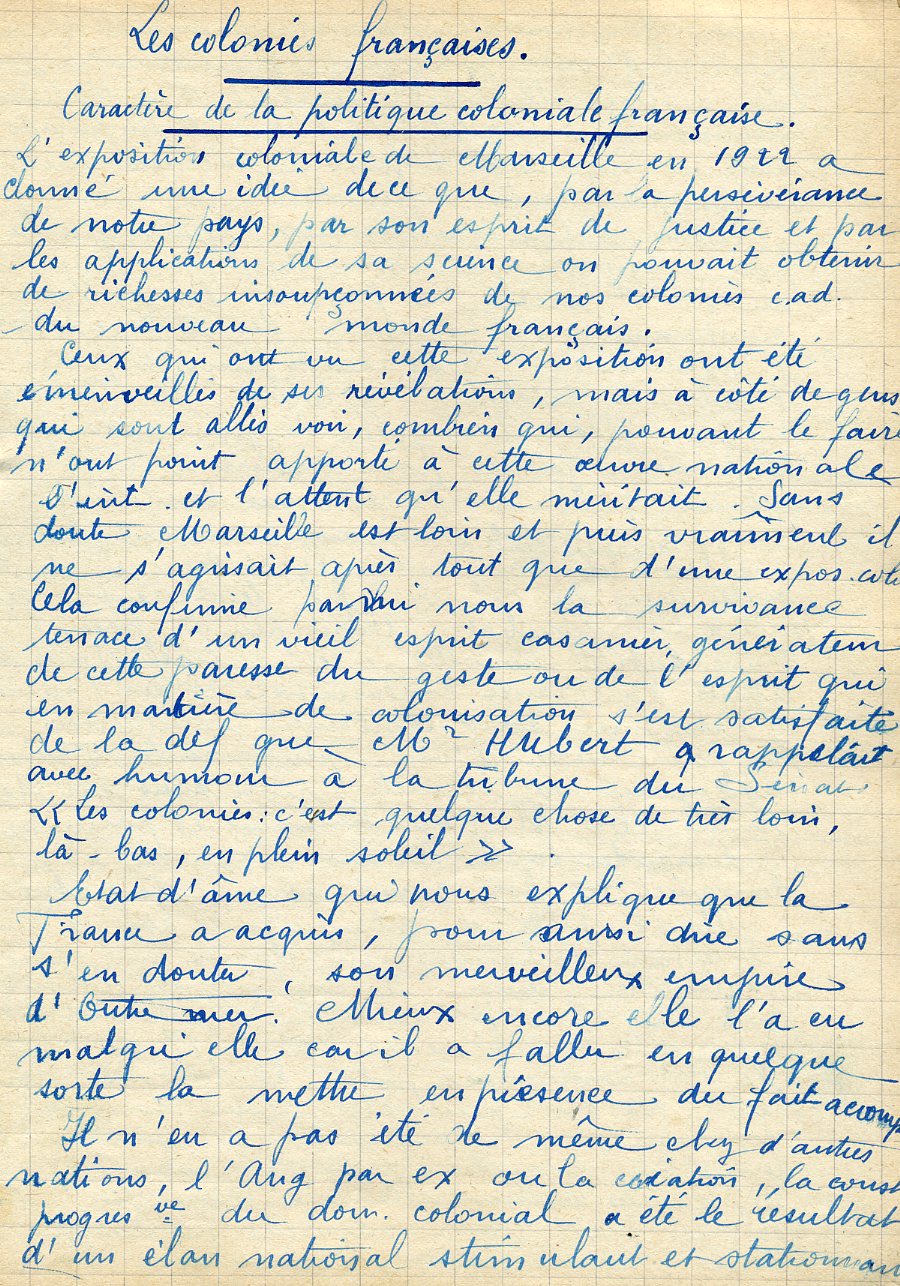 Les colonies françaises.
Caractère de la politique coloniale française.
L'exposition coloniale de Marseille en 1922 a
donné une idée de ce que, par la persévérance
de notre pays, par son esprit de justice et par
les applications de sa science on pouvait obtenir
de richesses insoupçonnées de nos colonies c.a.d.
du nouveau monde français.
Ceux qui ont vu cette exposition ont été
émerveillés de ses révélations, mais à côté de gens
qui sont allés voir, combien qui, pouvant le faire
n'ont point apporté à cette œuvre nationale
l'int. et l'attent qu'elle méritait. Sans
doute Marseille est loin et puis vraiment il
ne s'agissait après tout que d'une expos. colo
Cela confirme parmi nous la survivance
tenace d'un vieil esprit casanier, générateur
de cette paresse du geste ou de l'esprit qui
en matière de colonisation s'est satisfaite
de la déf que Mr HUbert a rappelait
avec humour à la tribune du Sénat.
« Les colonies : c'est quelque chose de très loin,
là-bas, en plein soleil ».
Etat d'âme qui nous explique que la
France a acquis, pour ainsi dire sans
s'en douter, son merveilleux empire
d'Outre mer. Mieux encore elle l'a eu
malgré elle car il a fallu en quelque
sorte la mettre en présence du fait accomp
Il n'en a pas été de même chez d'autres
nations, l'Ang par ex ou la création, la const
progres ve du dom. colonial a été le résultat
d'un élan national stimulant et